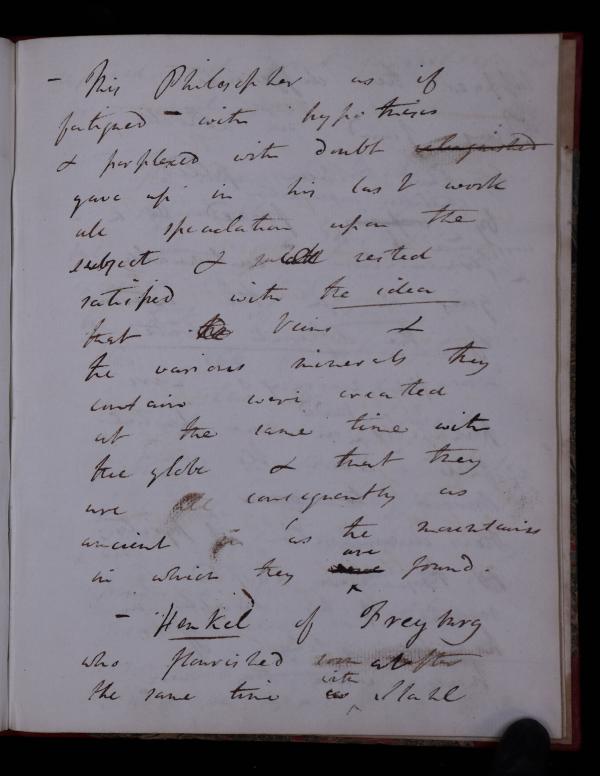 - This Philosopher as if
fatigued - with hypotheses
& perplexed with doubt relinquished
gave up in his last work
all speculation upon the
subject & rested
satisfied with the idea
that the Veins &
the various minerals they
contain were created
at the same time with
the globe & that they
are all consequently as
ancient as the mountains
in which they are found.
- Henkel of Freyburg
who flourished at after
the same time with Stahl